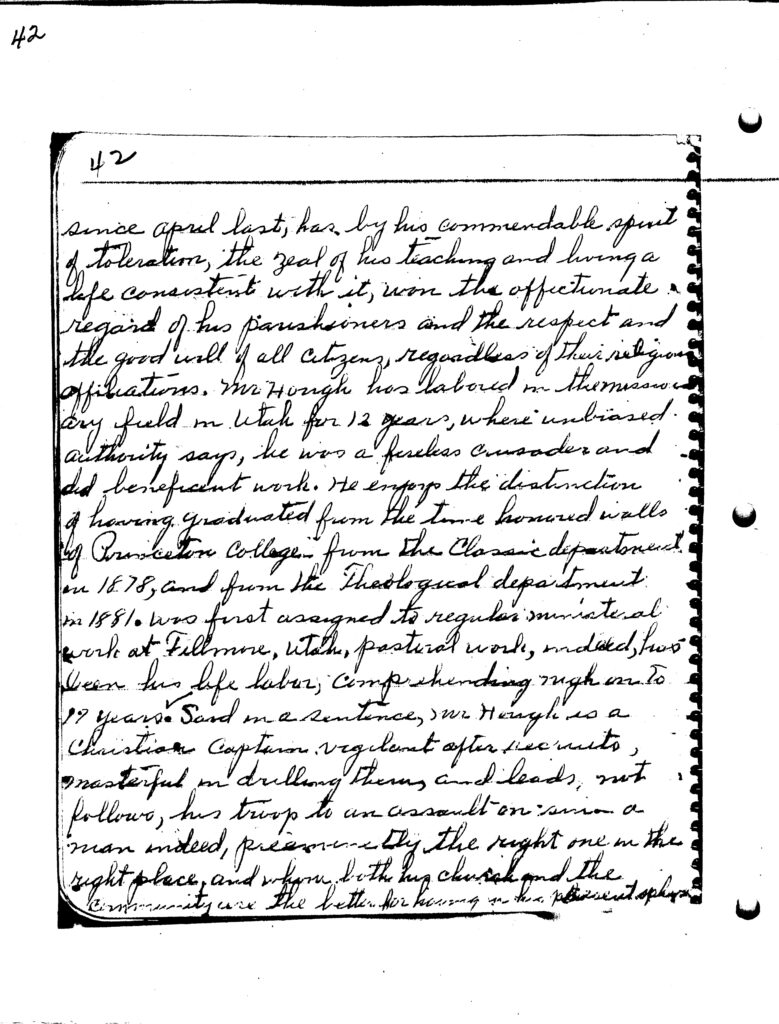 42
42
since april last, has by his commendable spirit
of toleration, the zeal of his teaching and living a
life consistent with it, won the affectunate
regard of his parishioners and the respect and
the good will of all citizens, regardless of their religious
affiliations. Mr Hough has labored in the mission
ary field in Utah for 12 years, where unbiased
authority says, he was a fereless crusader and
did beneficent work. He enjoys the distinction
of having graduated from the time honored walls
of Princeton College from the Classic department
in 1878, and from the Theological department
in 1881. was first assigned to regular ministeral
work at Fillmore, Utah, pastoral work, indeed, has
been his life labor, comprehending nigh on to
17 years. Said in a sentence, Mr Hough is a
Christian Captain vigilant after recruits,
masterful in drilling them, and leads, not
follows, his troop to an assault on sin a
man indeed, preeminently the right one in the
right place, and whom both his church and the
community are the better for having in his present sphere